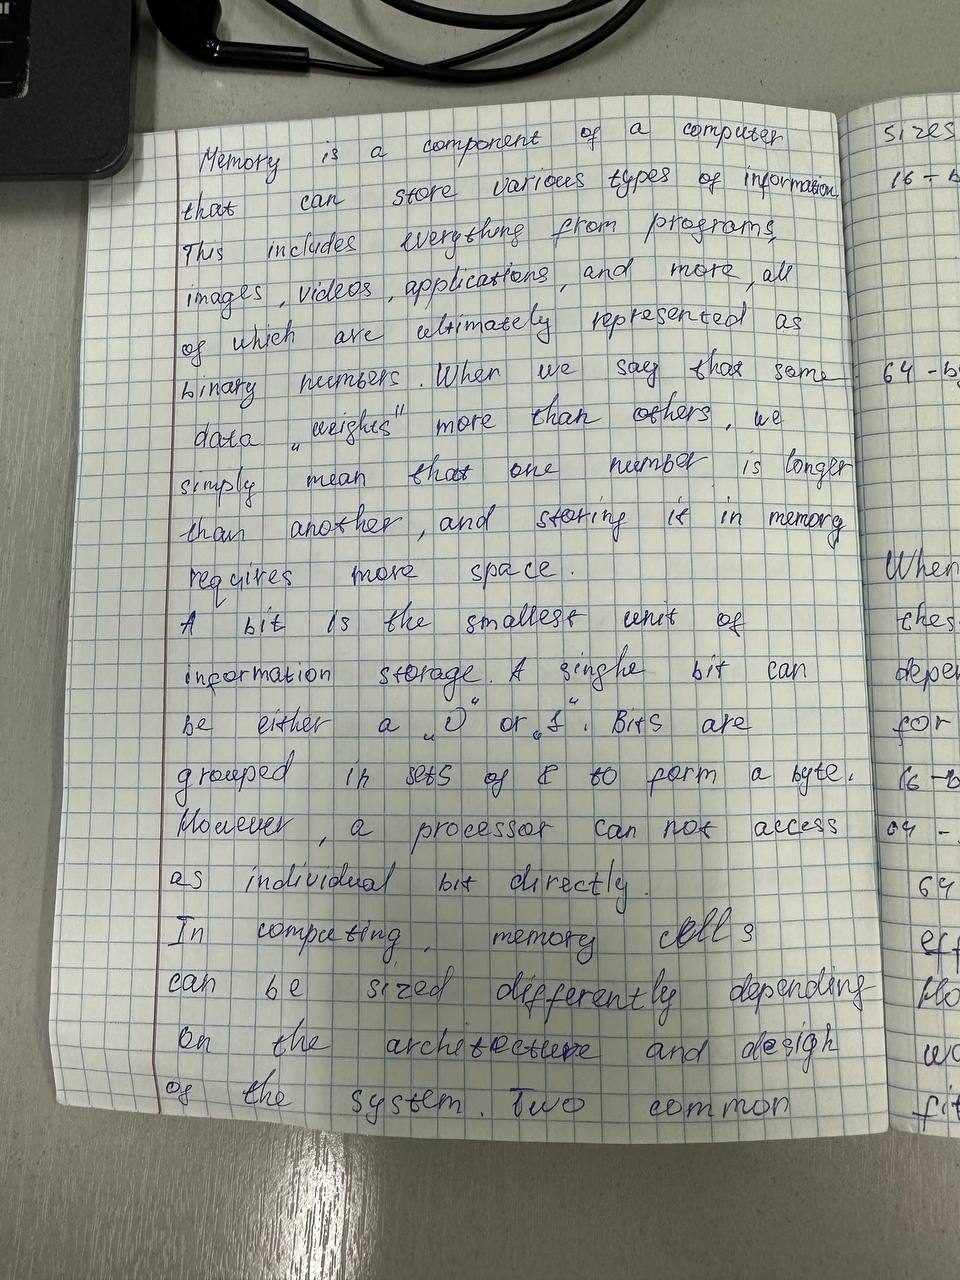 Memory is a component of a computer
that can store various types of information
This includes everything from programs,
images, videos, applications, and more, all
of which are ultimately represented as
binary numbers. When we say that some
data „weights" more than others, we
simply mean that one number is longer
than another, and storing it in memory
requires more space.
A bit is the smallest unit of
information storage. A singhe bit can
be either a „0" or „1". Bits are
grouped in sets of 8 to form a byte.
However, a processor can not access
as individual bit directly.
In computing, memory cells
can be sized differently depending
on the architecture and desigh
of the system. Two common
sizes
16-b
64-by
When
thes
depen
for
16-b
64 -
64
eff
Ho
wo
fit